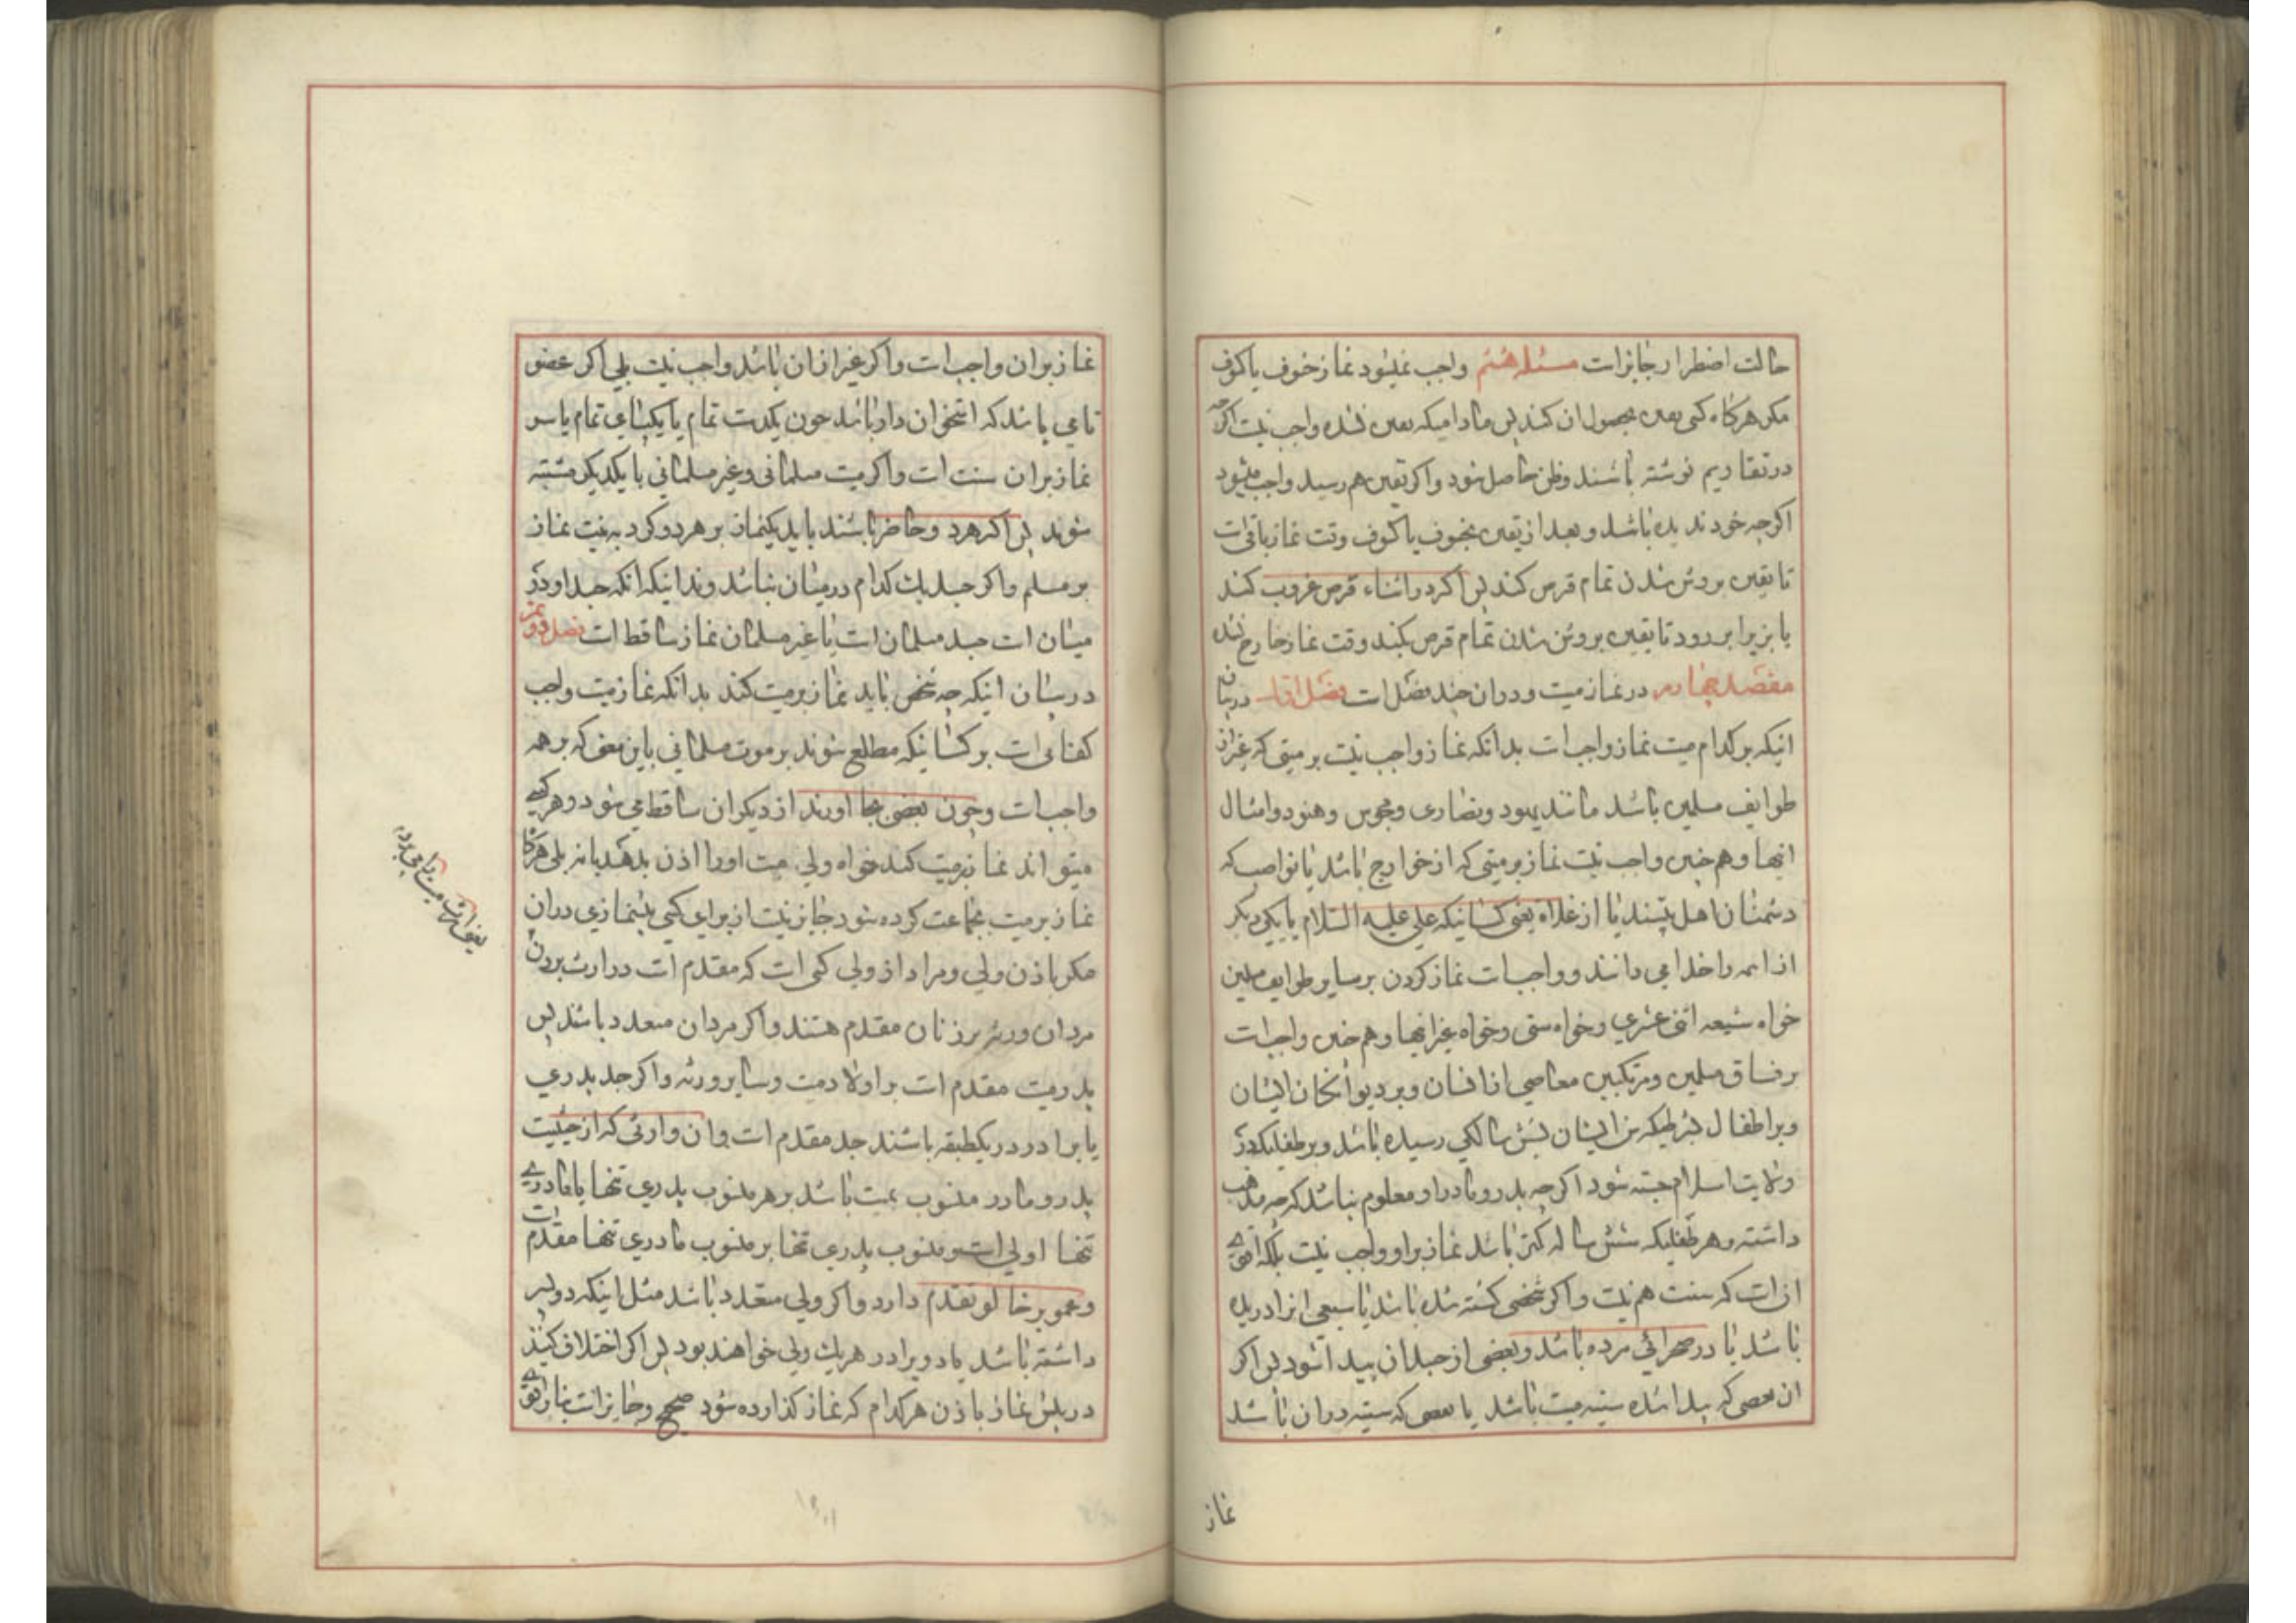 حالت اضطرار جایز است مسئله هشتم واجب نمیشود نماز خوف یا کسوف
مکر هرکاه کسی یقین بحصول ان کند پس مادامیکه یقین نشده واجب نیست اکرچه
در تقاویم نوشته باشند وظن حاصل شود واکر یقین هم رسید واجب میشود
اکرچه خود ندیده باشد وبعد از یقین بخسوف یا کسوف وقت نماز باقی است
تا یقین بروشن شدن تمام قرص کند پس اکر در اثناء قرص غروب کند
یا بزیر ابر رود تا یقین بروشن شدن تمام قرص نکند وقت نماز خارج نشده
مقصد چهارم در نماز میت ودران چند فصل است فصل اول در بیان
اینکه بر کدام میت نماز واجب است بدانکه نماز واجب نیست بر میتی که غیر از
طوایف مسلمین باشد مانند یهود ونصاری ومجوس وهنود وامثال
انها وهم چنین واجب نیست نماز بر میتی که از خوارج باشد یا نواصب که
دشمنان اهل بیتند یا از غلاة یعنی کسانیکه علی علیه السلام یا یکی دیکر
از ائمه را خدا می دانند وواجب است نماز کردن بر سایر طوایف مسلمین
خواه شیعه اثنی عشری وخواه سنی وخواه غیر انها وهم چنین واجب است
بر فساق مسلمین ومرتکبین معاصی از انسان وبر دیوانکان ایشان
وبر اطفال بشرطیکه سن ایشان بشش سالکی رسیده باشد وبر طفلیکه در
ولایت اسلام جسته شود اکرچه پدر ومادر او معلوم نباشد که چه مذهب
داشته وهر طفلیکه شش ساله کمتر باشد نماز بر او واجب نیست بلکه اقوی
ان است که سنت هم نیست واکر شخصی کشته شده باشد یا سبعی انرا دریده
باشد یا در صحرائی مرده باشد وبعضی از جسد ان پیدا شود پس اکر
ان بعضی که پیدا شده سینه میت باشد یا بعضی که سینه در ان باشد
نماز
نماز بر ان واجب است واکر غیر از ان باشد واجب نیست بلی اکر عضو
تامی باشد که استخوان دار باشد چون یکدست تمام یا یکپای تمام یا سر
نماز بر ان سنت است واکر میت مسلمانی وغیر مسلمانی با یکدیکر مشتبه
شوند پس اکر هر دو حاضر باشند باید یکنماز بر هر دو کرد به نیت نماز
بر مسلم واکر جسد یک کدام در میان نباشد وندانیکه انکه جسد او در
میان است جسد مسلمان است یا غیر مسلمان نماز ساقط است فصل دویم
در بیان اینکه چه شخص باید نماز بر میت کند بدانکه نماز میت واجب
کفائی است بر کسانیکه مطلع شوند بر موت مسلمانی باین معنی که بر همه
واجب است وچون بعضی بجا اورند از دیکران ساقط می شود وهر کسی
میتواند نماز بر میت کند خواه ولی میت او را اذن بدهد یا نه بلی هرکاه
نماز بر میت بجماعت کرده شود جایز نیست از برای کسی پیشنمازی دران
مکر باذن ولی ومراد از ولی کسی است که مقدم است در ارث بردن
یعنی ارث میت را می برد
مردان ورثه بر زنان مقدم هستند واکر مردان متعدد باشند پس
پدر میت مقدم است بر اولاد میت وسایر ورثه واکر جد پدری
یا برادر در یکطبقه باشند جد مقدم است وان وارثی که از حیثیت
پدر ومادر منسوب بمیت باشد بر هر منسوب پدری تنها یا مادری
تنها اولی است ومنسوب پدری تنها بر منسوب مادری تنها مقدم است
وعمو بر خالو تقدم دارد واکر ولی متعدد باشد مثل اینکه دو پسر
داشته باشد یا دو برادر هر یک ولی خواهند بود پس اکر اختلاف کنند
در پیش نماز باذن هر کدام که نماز کذارده شود صحیح وجایز است بنا بر اقوی